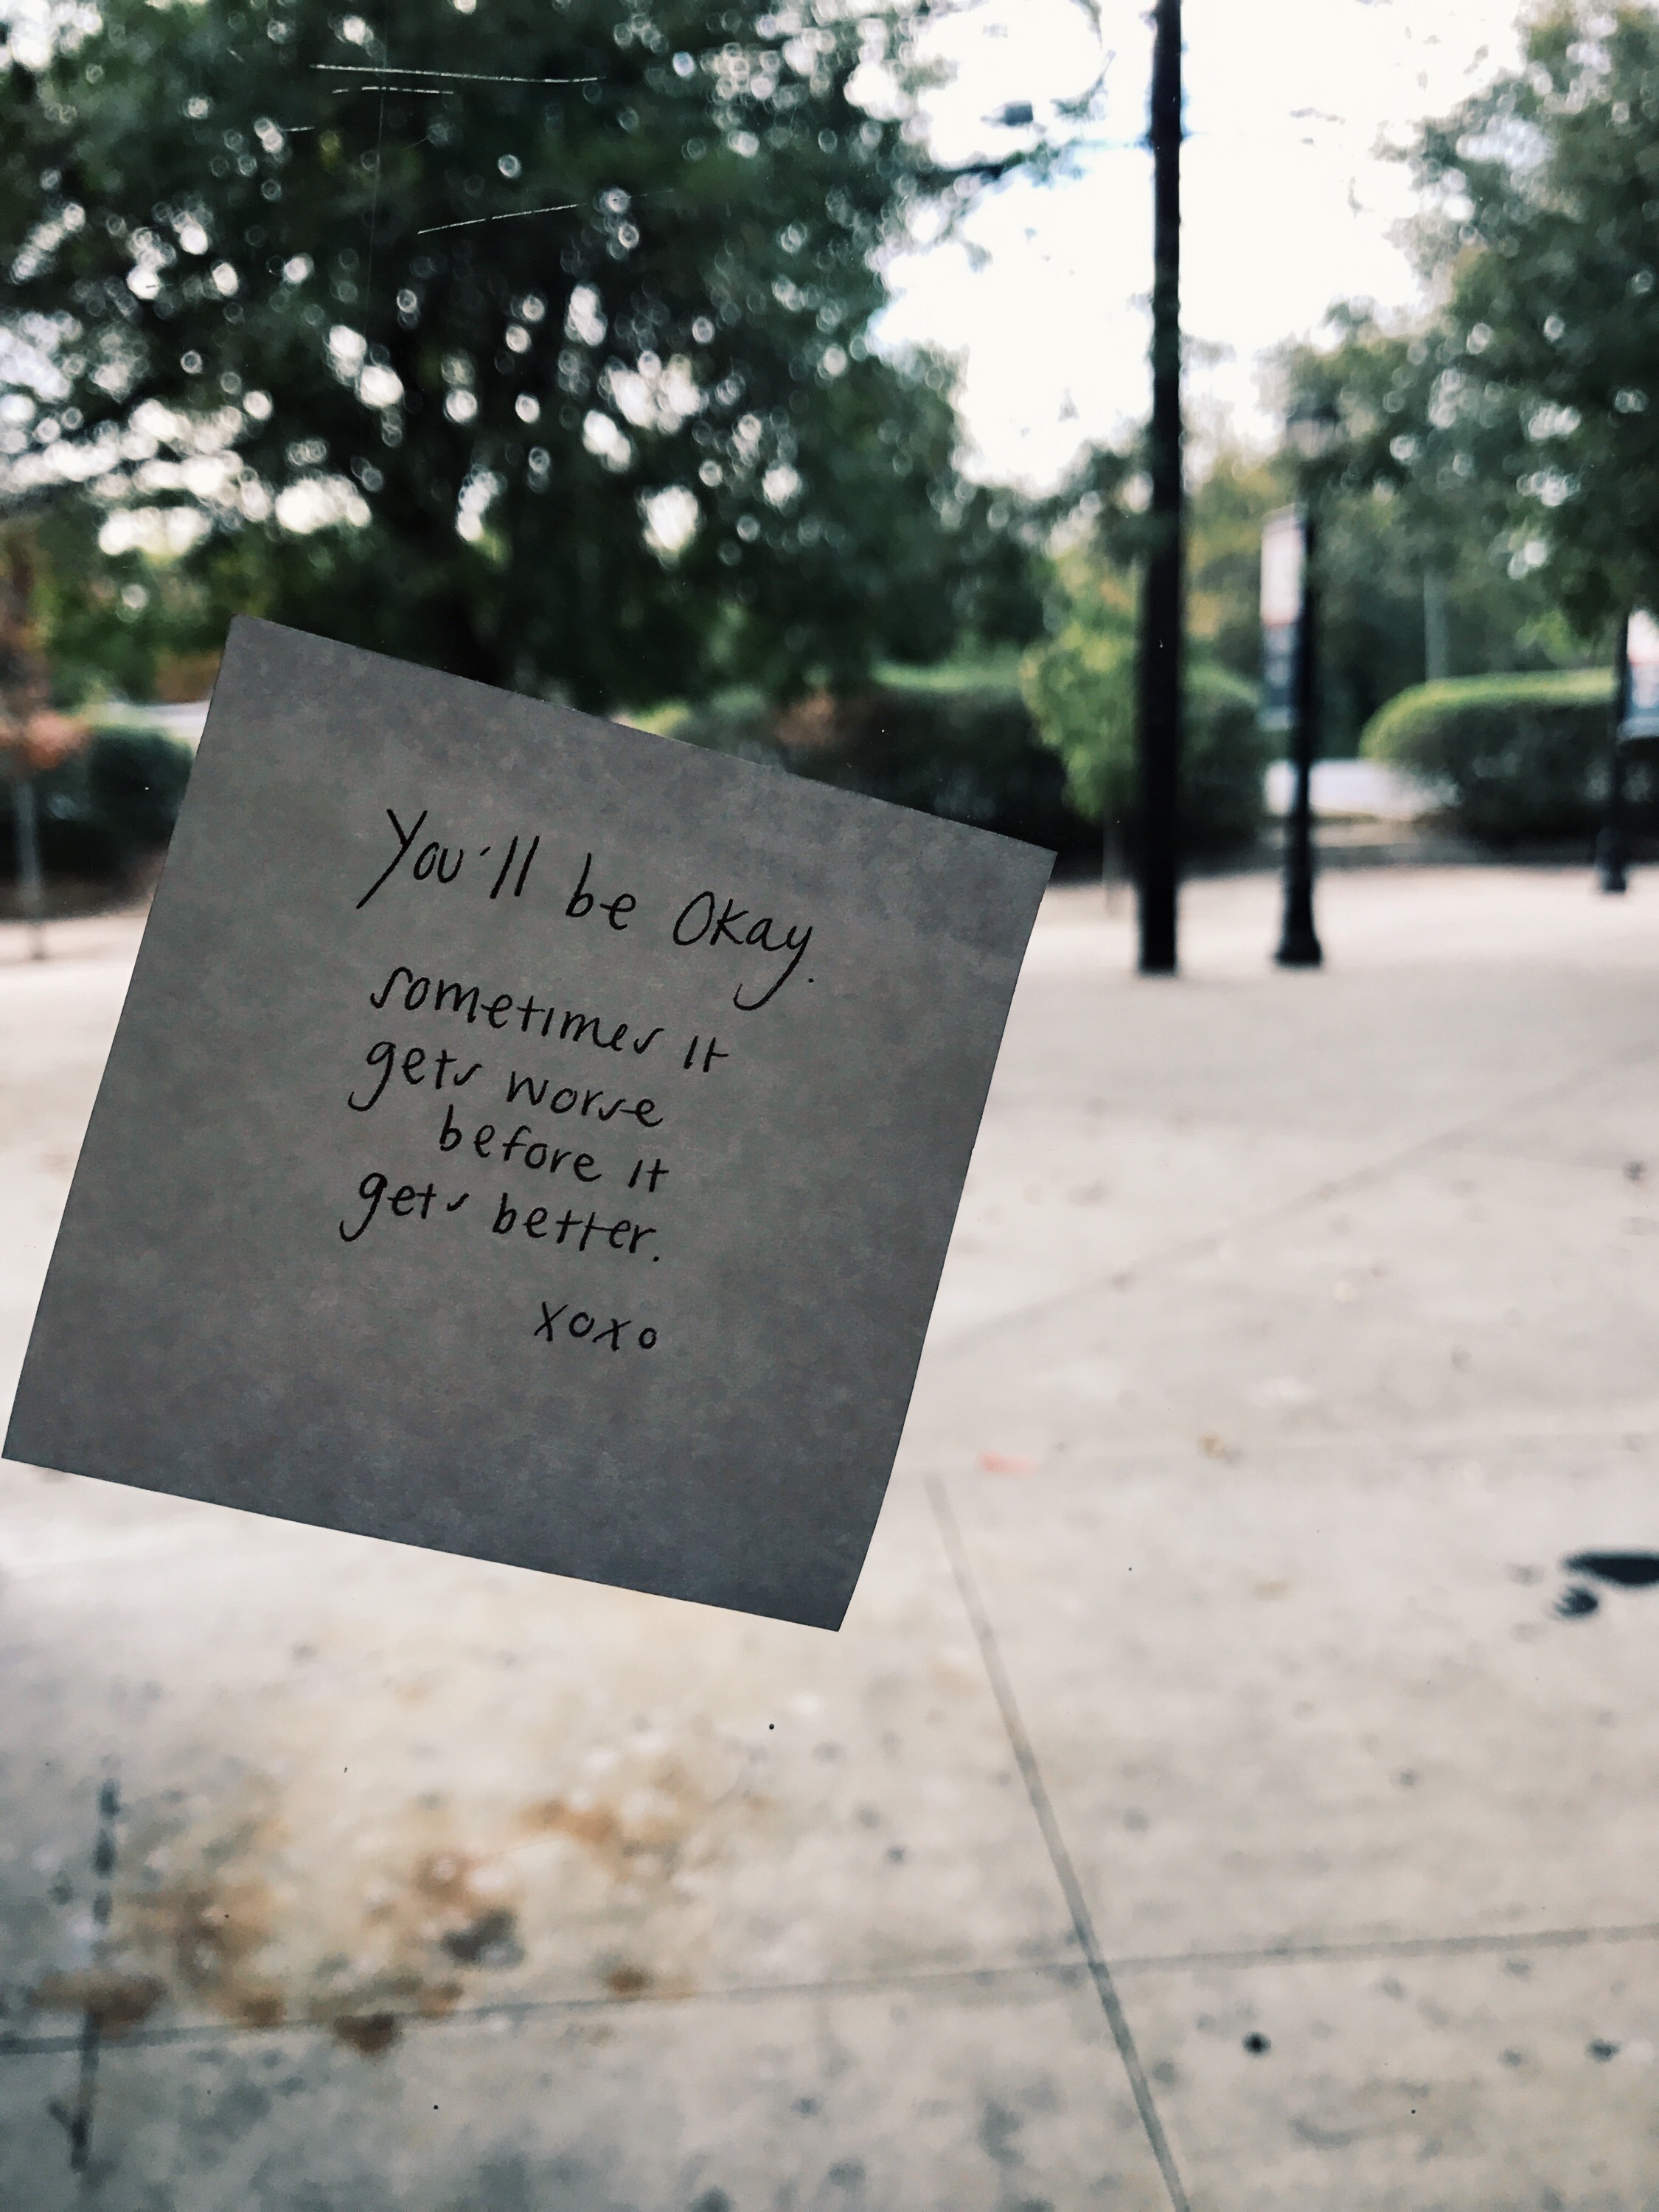 You'll be Okay.
sometimes it
gets worse
before it
gets better.
xoxo